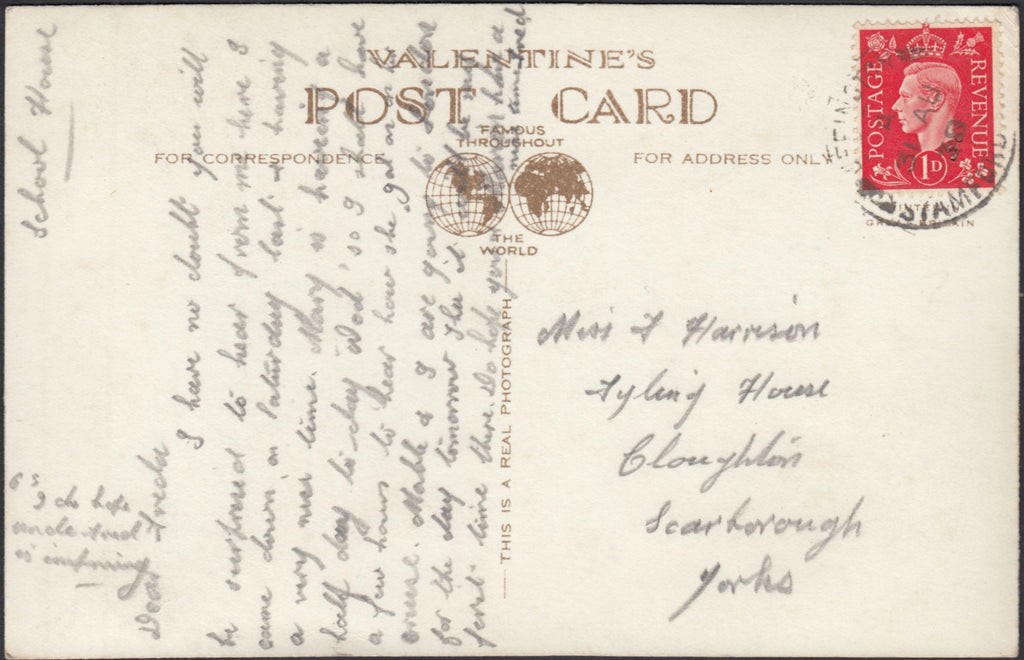 VALENTINE'S
POST CARD
FAMOUS
THROUGHOUT
THE
WORLD
FOR CORRESPONDENCE
FOR ADDRESS ONLY
THIS IS A REAL PHOTOGRAPH
POSTAGE
REVENUE
1D
STAMFORD
School House
Dear Freda
I have no doubt you will
be surprised to hear from me here I
came down on Saturday last & having
a very nice time. Mary is having a
half day to-day Wed's so I shall have
a few hours to hear how she got on in
Mable & I are going to
for the day tomorrow Thu it will be my
first time there. Do hope you
Miss F Harrison
Syling House
Cloughton
Scarborough
Yorks
P S
I do hope
uncle Fred
is improving